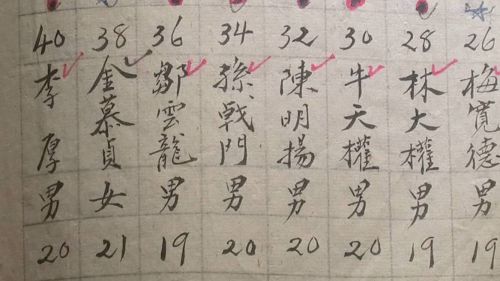 26 梅寬德 男 19
28 林大權 男 19
30 牛天權 男 20
32 陳明揚 男 20
34 孫戰門 男 20
36 鄒雲龍 男 19
38 金慕貞 女 21
40 李厚 男 20